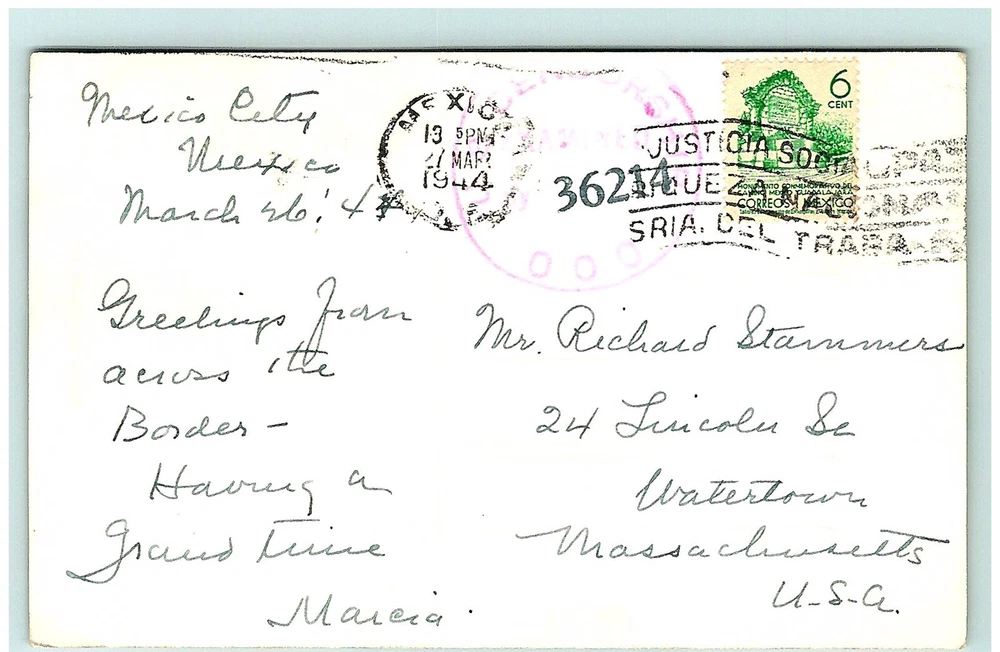 Mexico City
Mexico
March 26' 44
Greetings from
across the
Border –
Having a
Grand time
Marcia.
MEXICO
13 5PM
27 MAR
1944
36214
000
6
CENT
CORREOS MEXICO
JUSTICIA SOCIAL
SRIA. DEL TRABA
Mr. Richard Stammers
24 Lincoln St
Watertown
Massachusetts
U.S.A.